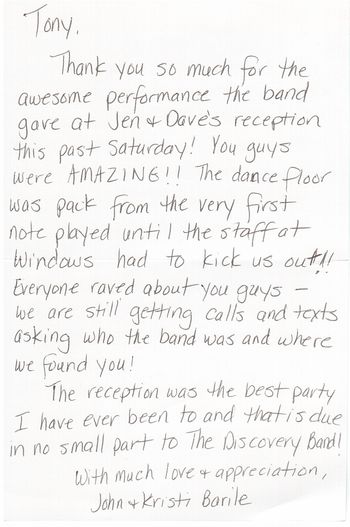 Tony,
Thank you so much for the
awesome performance the band
gave at Jen & Dave's reception
this past Saturday! You guys
were AMAZING!! The dance floor
was pack from the very first
note played until the staff at
Windows had to kick us out!!!
Everyone raved about you guys -
we are still getting calls and texts
asking who the band was and where
we found you!
The reception was the best party
I have ever been to and that is due
in no small part to The Discovery Band!
With much love & appreciation,
John & Kristi Barile